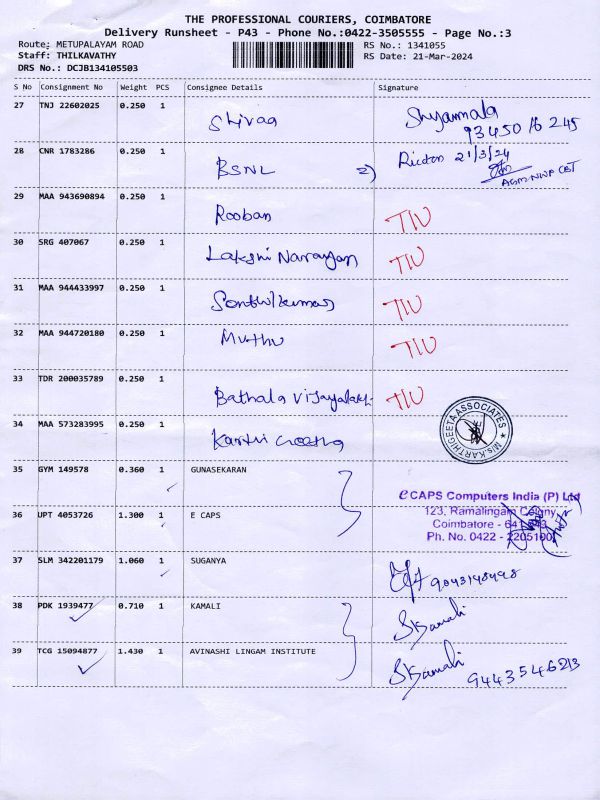 THE PROFESSIONAL COURIERS, COIMBATORE
Delivery Runsheet - P43 - Phone No.:0422-3505555 - Page No.:3
Route: METUPALAYAM ROAD
Staff: THILKAVATHY
DRS No.: DCJB134105503
RS No.: 1341055
RS Date: 21-Mar-2024
S No Consignment No Weight PCS Consignee Details Signature
27 TNJ 22602025 0.250 1 Shivaa Shyamala
93450 16 245
28 CNR 1783286 0.250 1 BSNL 2) 21/3/24
AGM-NWP CBT
29 MAA 943690894 0.250 1 Rooban TIU
30 SRG 407067 0.250 1 Lakshi Narayan TIU
31 MAA 944433997 0.250 1 TIU
32 MAA 944720180 0.250 1 Muthu TIU
33 TDR 200035789 0.250 1 Bathala TIU
34 MAA 573283995 0.250 1 Karthi Geetha
M/s. KARTHIGEETA ASSOCIATES
35 GYM 149578 0.360 1 GUNASEKARAN
36 UPT 4053726 1.300 1 E CAPS
eCAPS Computers India (P) Ltd
123, Ramalingam Colony
Coimbatore - 641
Ph. No. 0422 - 2205100
37 SLM 342201179 1.060 1 SUGANYA 9043148498
38 PDK 1939477 0.710 1 KAMALI SKamali
39 TCG 15094877 1.430 1 AVINASHI LINGAM INSTITUTE SKamali
9443546213